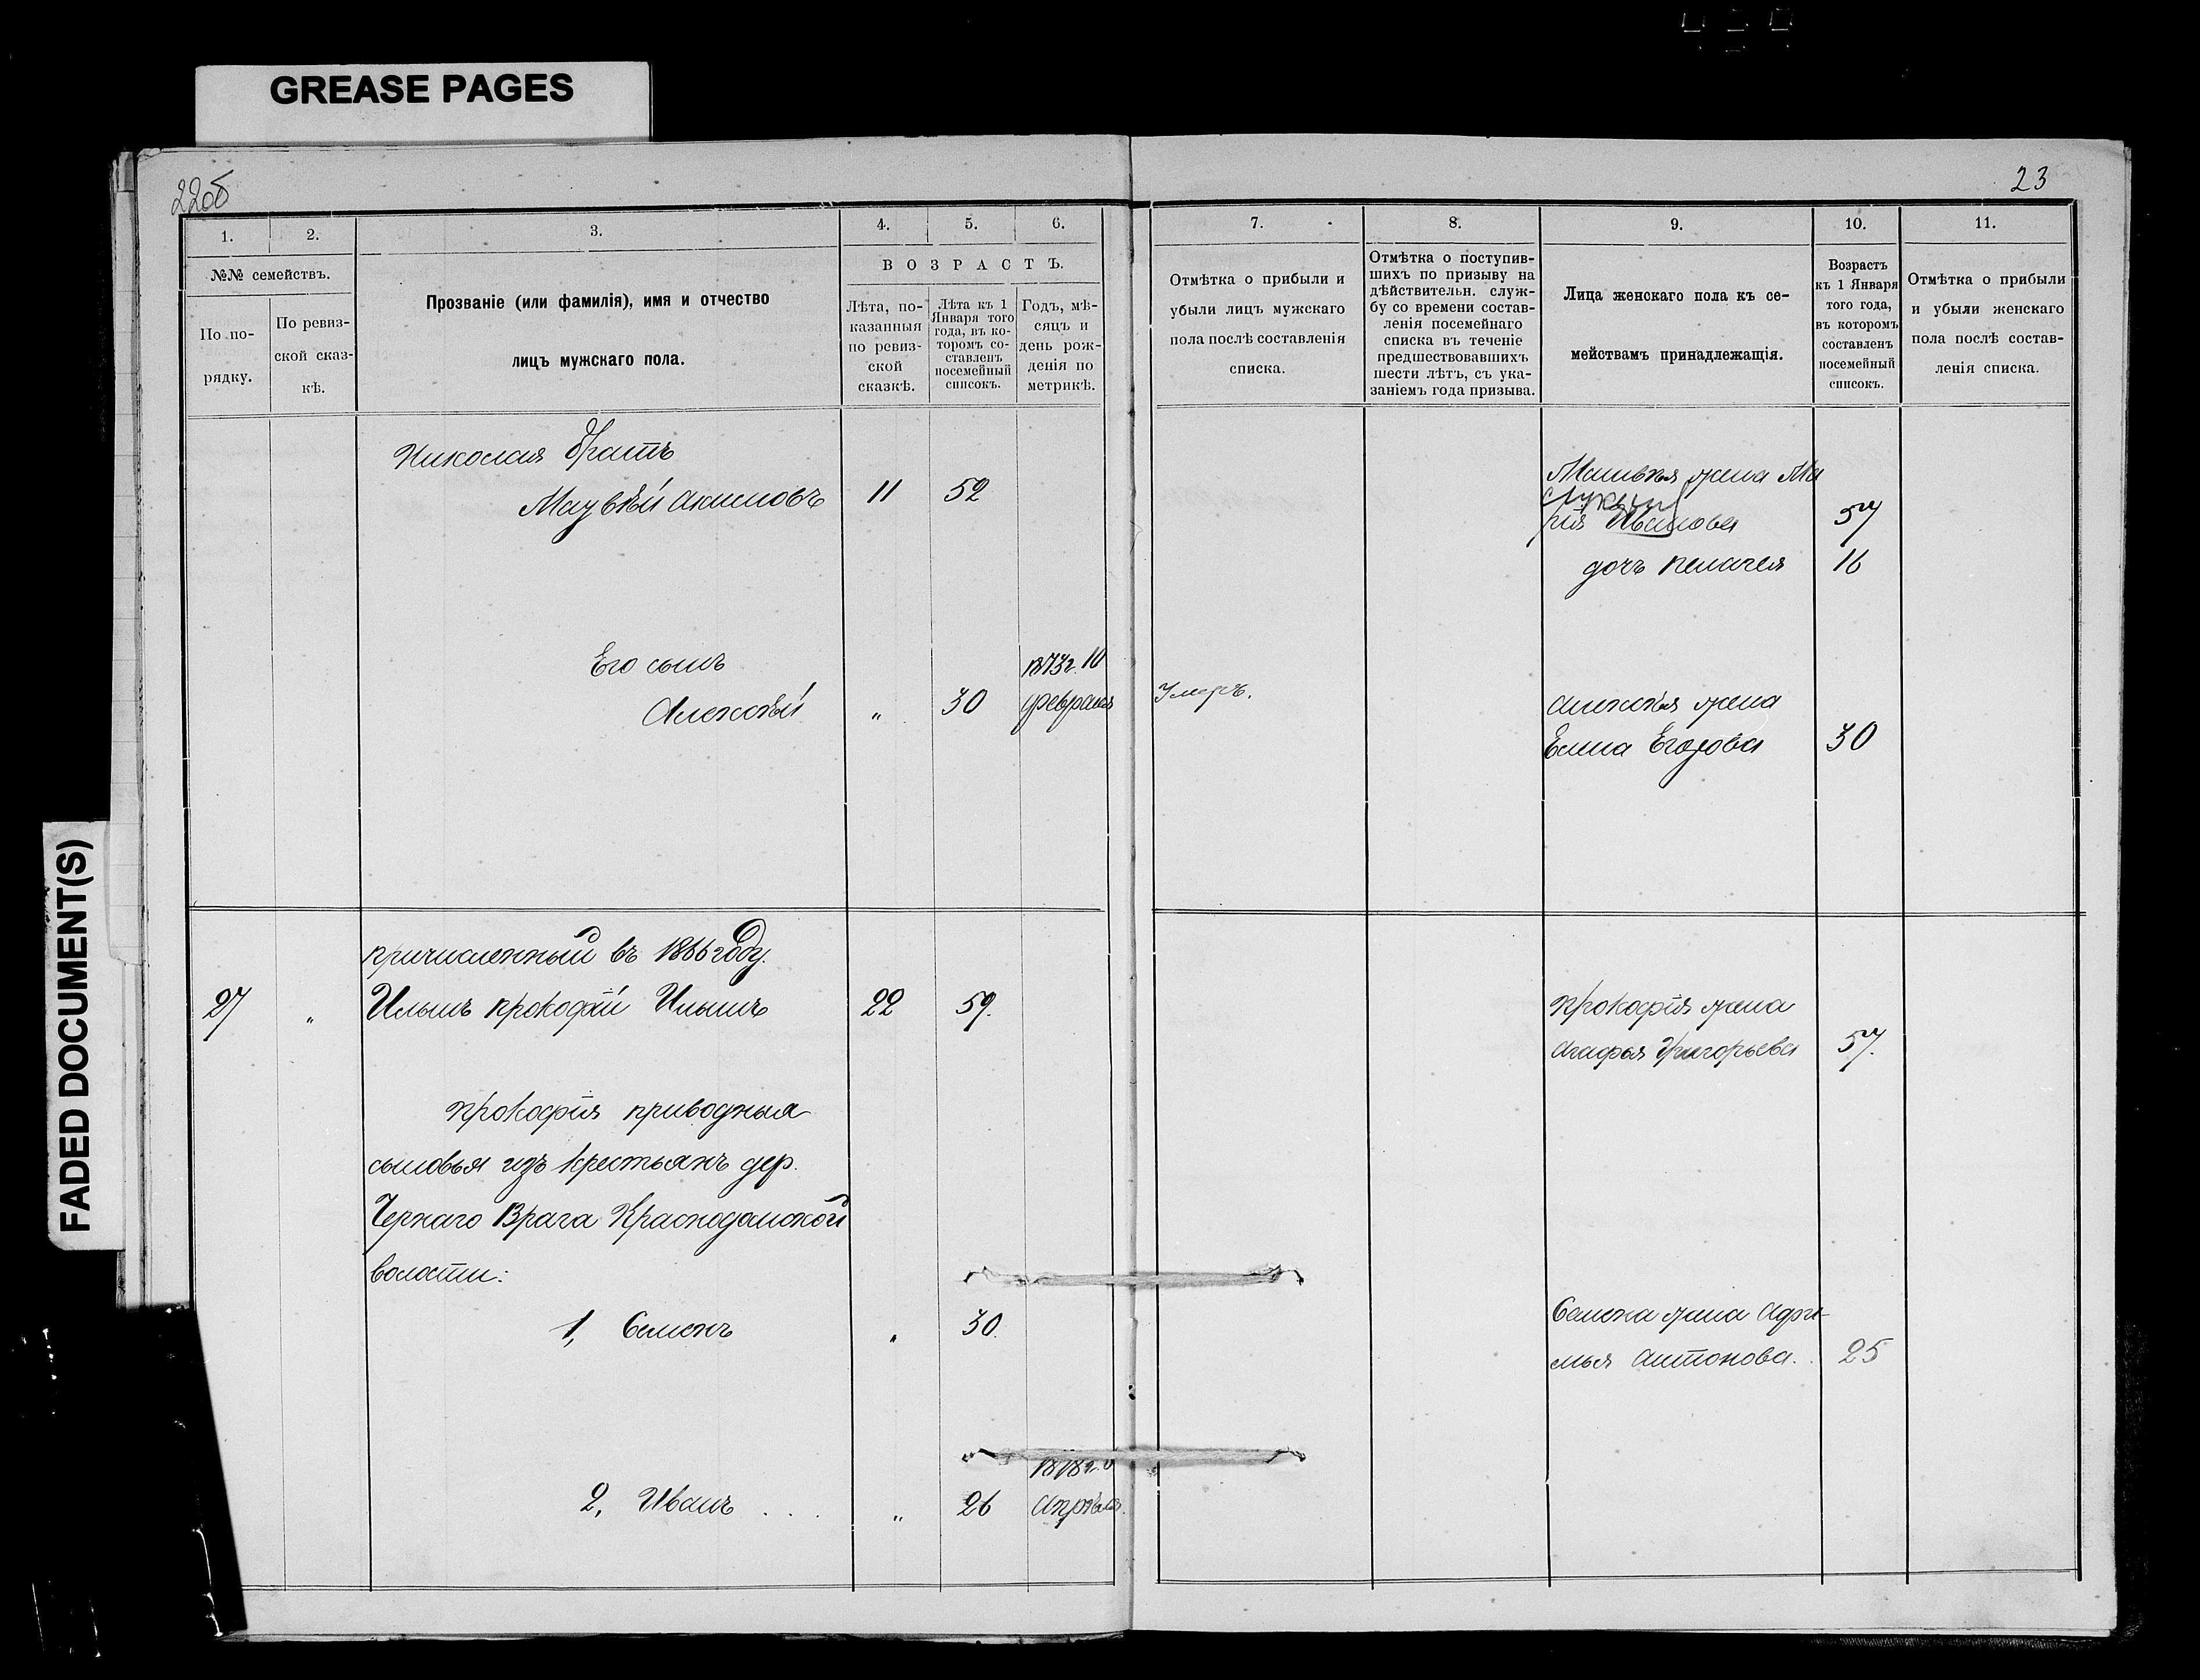 GREASE PAGES
FADED DOCUMENT(S)
22об
23
1.
2.
3.
4.
5.
6.
№№ семействъ.
По по-
рядку.
По ревиз-
ской сказ-
кѣ.
Прозваніе (или фамилія), имя и отчество
лицъ мужскаго пола.
ВОЗРАСТЪ.
Лѣта, по-
казанныя
по ревиз-
ской
сказкѣ.
Лѣта къ 1
Января того
года, въ ко-
торомъ со-
ставленъ
посемейный
списокъ.
Годъ, мѣ-
сяцъ и
день рож-
денія по
метрикѣ.
7.
8.
9.
10.
11.
Отмѣтка о прибыли и
убыли лицъ мужскаго
пола послѣ составленія
списка.
Отмѣтка о поступив-
шихъ по призыву на
дѣйствительн. служ-
бу со времени состав-
ленія посемейнаго
списка въ теченіе
предшествовавшихъ
шести лѣтъ, съ ука-
заніемъ года призыва.
Лица женскаго пола къ се-
мействамъ принадлежащія.
Возрастъ
къ 1 Января
того года,
въ которомъ
составленъ
посемейный
списокъ.
Отмѣтка о прибыли
и убыли женскаго
пола послѣ состав-
ленія списка.
Николая братъ
Матвѣй Акимовъ 11 52
Матвѣя жена Ма
рія Иванова 57
дочь Пелагея 16
Его сынъ
Алексѣй " 30
1873г. 10
февраля
Умеръ.
Алексѣя жена
Елена Егорова 30
причисленный въ 1866 году.
27 " Ильинъ Прокофій Ильинъ 22 59.
Прокофія жена
Агафья Григорьева 57.
Прокофія приводныя
сыновья изъ крестьянъ дер.
Чернаго Врага Краснодамской
волости:
1, Семенъ " 30.
Семена жена Афи-
мья Антонова. 25
2, Иванъ . . . " 26
Апрѣля.